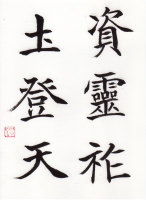 資靈祚
土登天